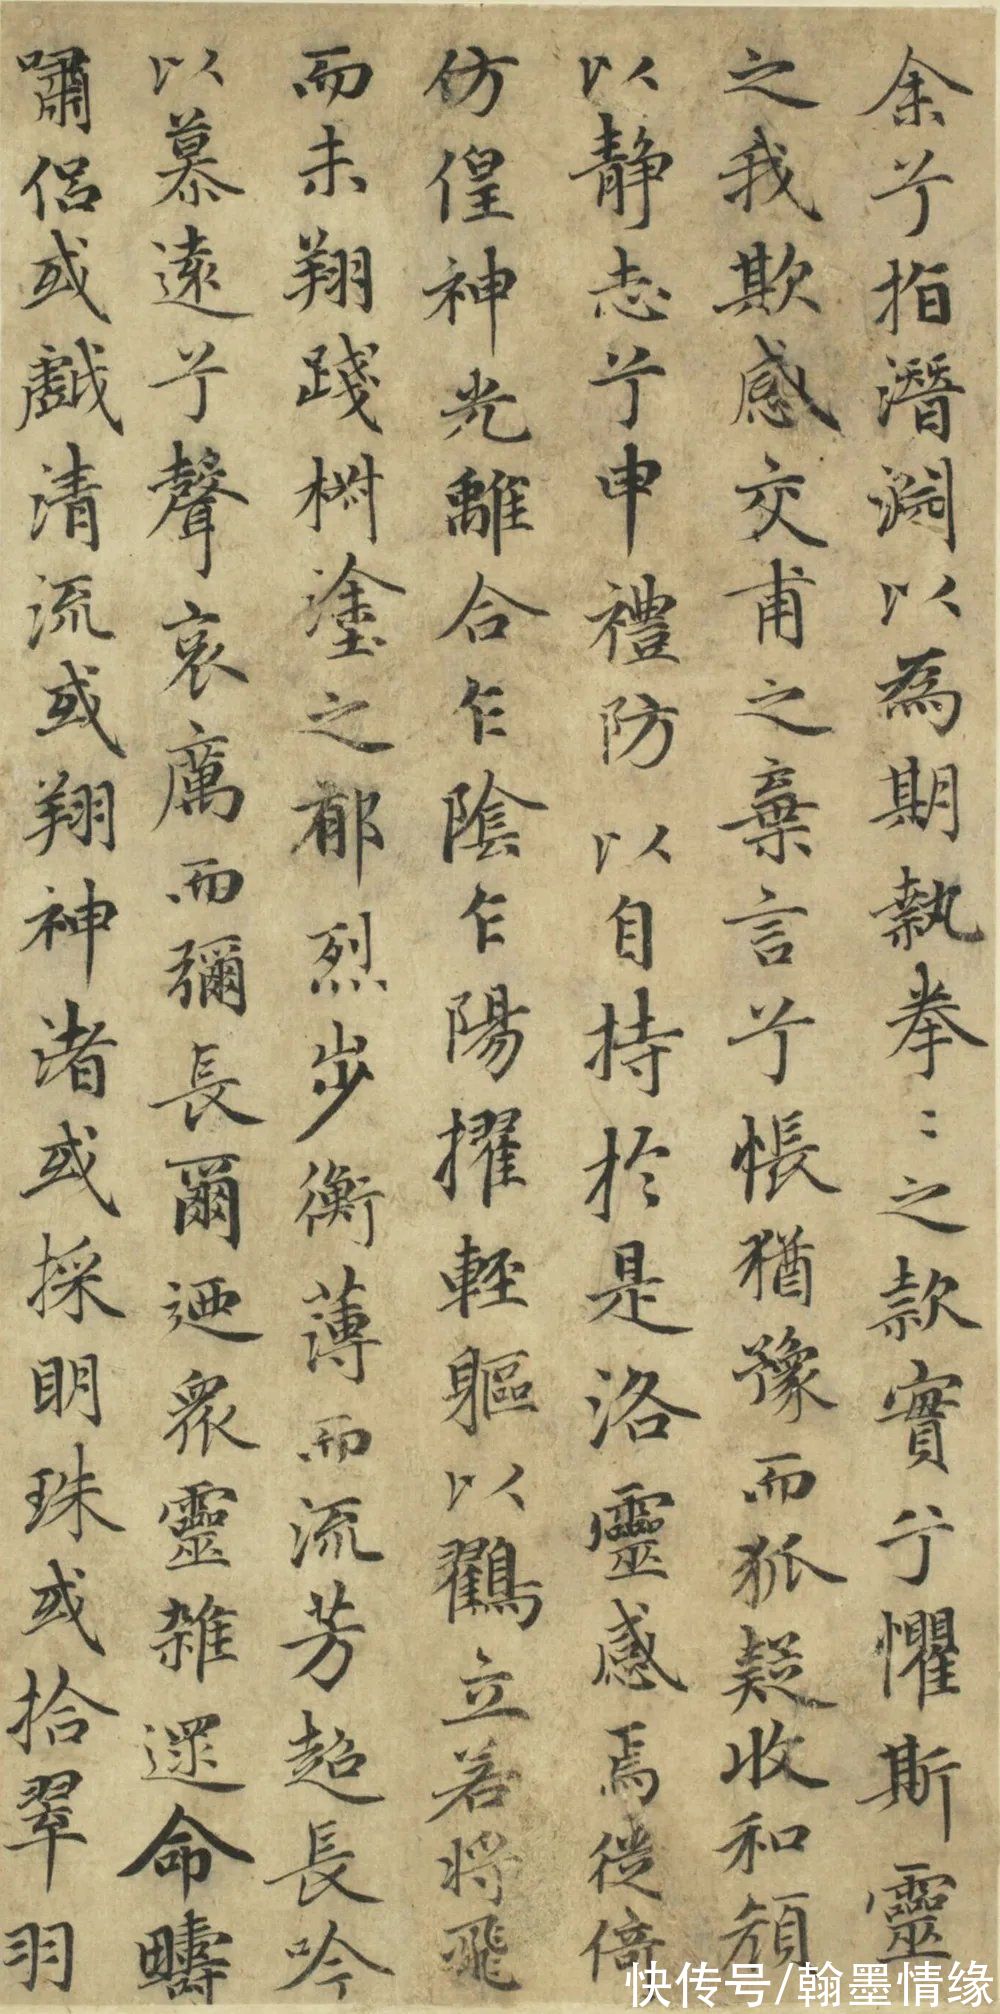 余兮指潛淵以為期執拳〻之款實兮懼斯靈
之我欺感交甫之棄言兮悵猶豫而狐疑收和顏
以靜志兮申禮防以自持於是洛靈感焉徙倚
仿偟神光離合乍陰乍陽擢輕軀以鸖立若將飛
而未翔踐椒塗之郁烈步衡薄而流芳超長吟
以慕遠兮聲哀厲而彌長爾迺眾靈雜遝命疇
嘯侶或戲清流或翔神渚或採明珠或拾翠羽
快传号/翰墨情缘